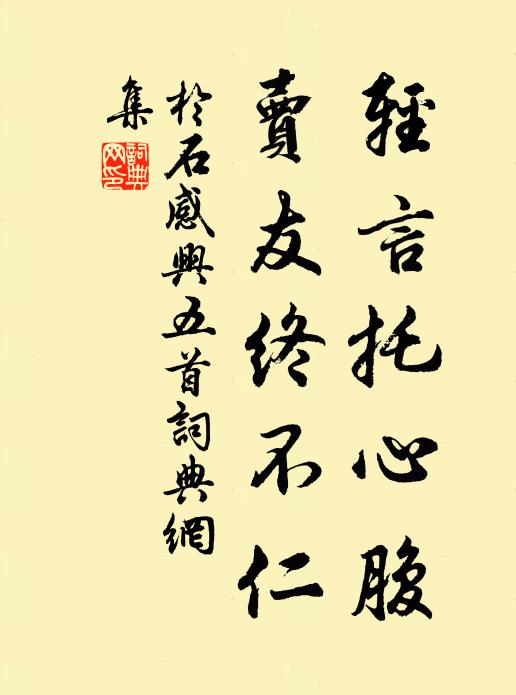 輕言托心腹
賣友終不仁
於石感興五首詞典網
集
詞典
网印